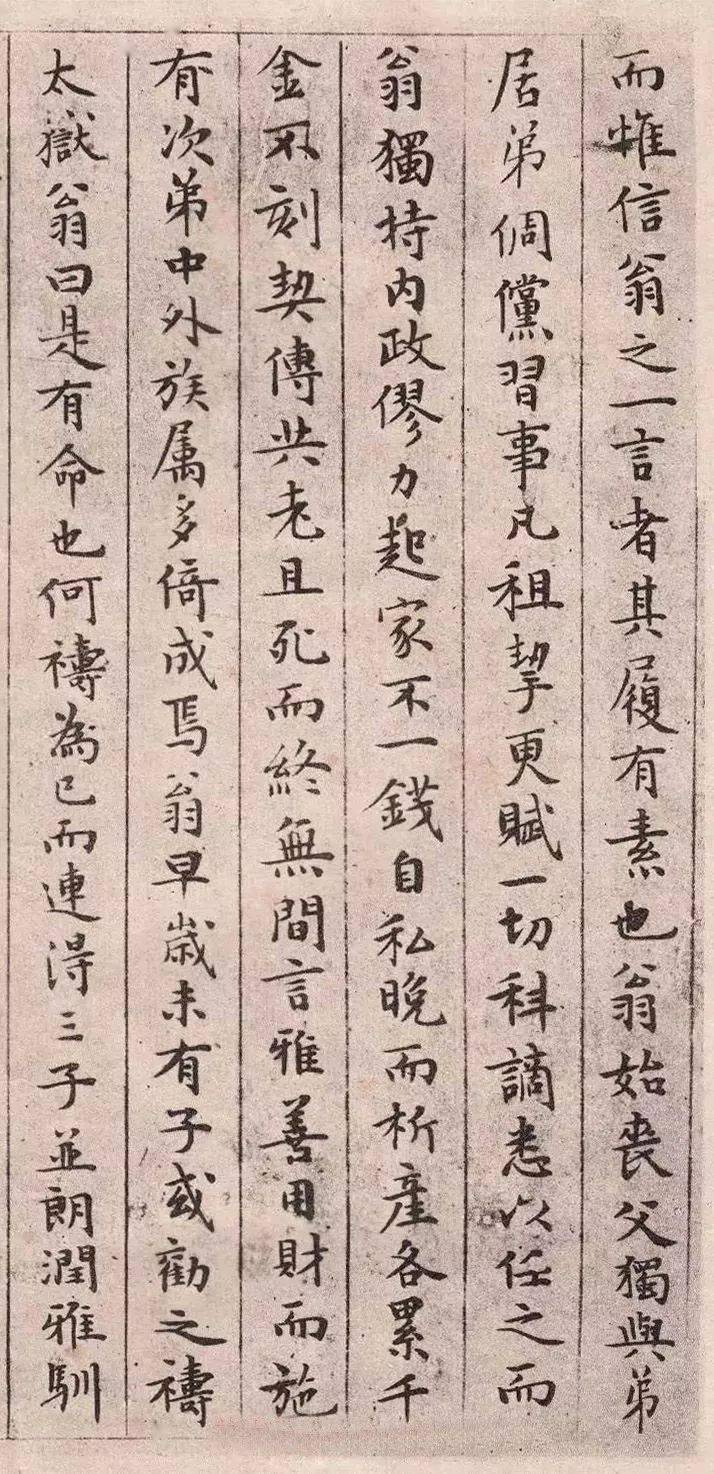 而惟信翁之一言者其履有素也翁始喪父獨與弟
居弟倜儻習事凡租挈更賦一切科謫悉以任之而
翁獨持内政僇力起家不一錢自私晚而析產各累千
金不刻契傳共老且死而終無間言雅善用財而施
有次弟中外族属多倚成焉翁早歲未有子或勸之禱
太嶽翁曰是有命也何禱為已而連得三子並朗潤雅馴